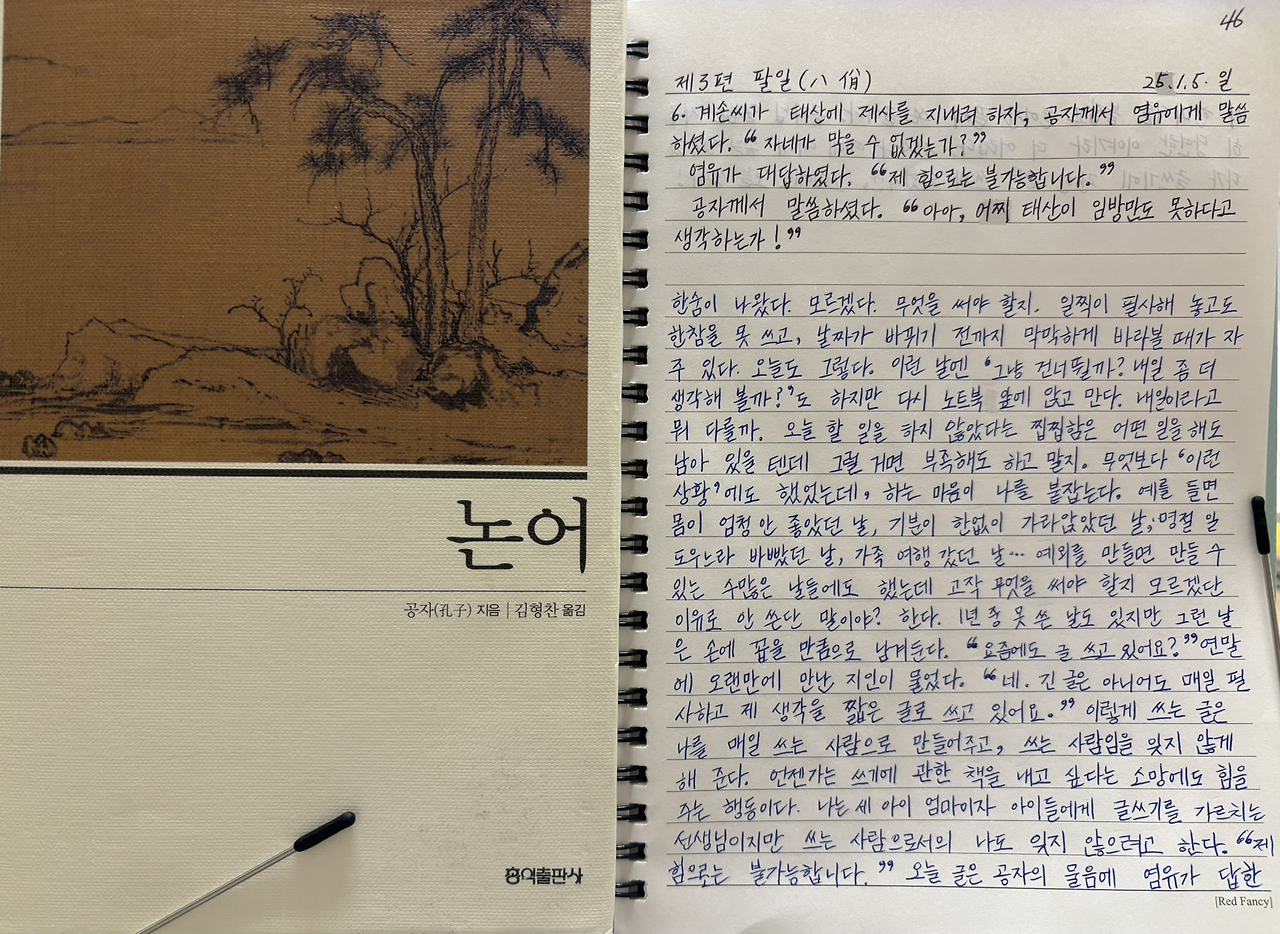 논어
공자(孔子) 지음 | 김형찬 옮김
홍익출판사
46
제3편 팔일(八佾) 25.1.5. 일
6. 계손씨가 태산에 제사를 지내려 하자, 공자께서 염유에게 말씀
하셨다. “자네가 막을 수 없겠는가?”
염유가 대답하였다. “제 힘으로는 불가능합니다.”
공자께서 말씀하셨다. “아아, 어찌 태산이 임방만도 못하다고
생각하는가!”
한숨이 나왔다. 모르겠다. 무엇을 써야 할지. 일찍이 필사해 놓고도
한참을 못 쓰고, 날짜가 바뀌기 전까지 막막하게 바라볼 때가 자
주 있다. 오늘도 그렇다. 이런 날엔 ‘그냥 건너뛸까? 내일 좀 더
생각해 볼까?’도 하지만 다시 노트북 앞에 앉고 만다. 내일이라고
뭐 다를까. 오늘 할 일을 하지 않았다는 찝찝함은 어떤 일을 해도
남아 있을 텐데 그럴 거면 부족해도 하고 말지. 무엇보다 ‘이런
상황’에도 했었는데, 하는 마음이 나를 붙잡는다. 예를 들면
몸이 엄청 안 좋았던 날, 기분이 한없이 가라앉았던 날, 명절 일
도우느라 바빴던 날, 가족 여행 갔던 날… 예외를 만들면 만들 수
있는 수많은 날들에도 했는데 고작 무엇을 써야 할지 모르겠단
이유로 안 쓴단 말이야? 한다. 1년 중 못 쓴 날도 있지만 그런 날
은 손에 꼽을 만큼으로 남겨둔다. “요즘에도 글 쓰고 있어요?” 연말
에 오랜만에 만난 지인이 물었다. “네. 긴 글은 아니어도 매일 필
사하고 제 생각을 짧은 글로 쓰고 있어요.” 이렇게 쓰는 글은
나를 매일 쓰는 사람으로 만들어주고, 쓰는 사람임을 잊지 않게
해 준다. 언젠가는 쓰기에 관한 책을 내고 싶다는 소망에도 힘을
주는 행동이다. 나는 세 아이 엄마이자 아이들에게 글쓰기를 가르치는
선생님이지만 쓰는 사람으로서의 나도 잊지 않으려고 한다. “제
힘으로는 불가능합니다.” 오늘 글은 공자의 물음에 염유가 답한
[Red Fancy]